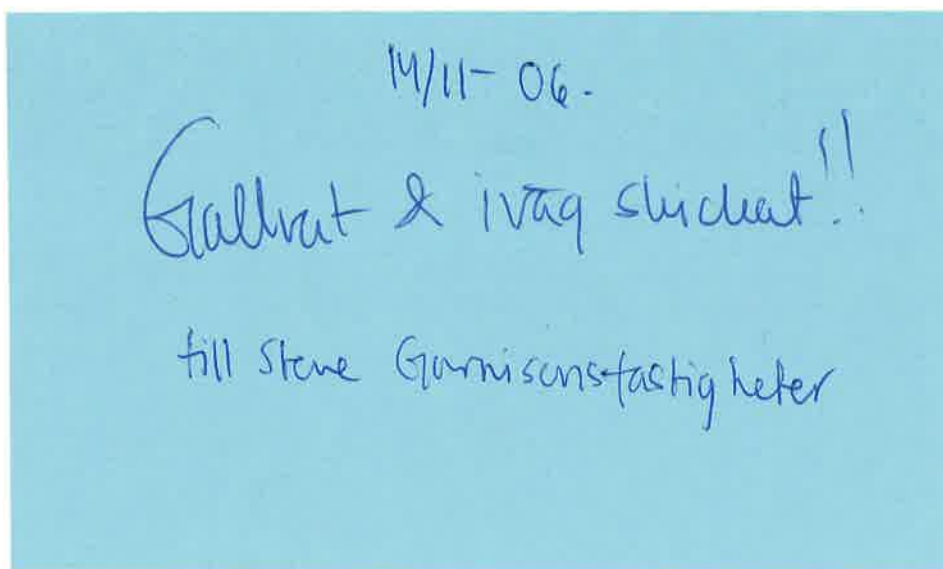 14/11-06.
Gallrat & iväg skickat!!
till Garnisonsfastigheter